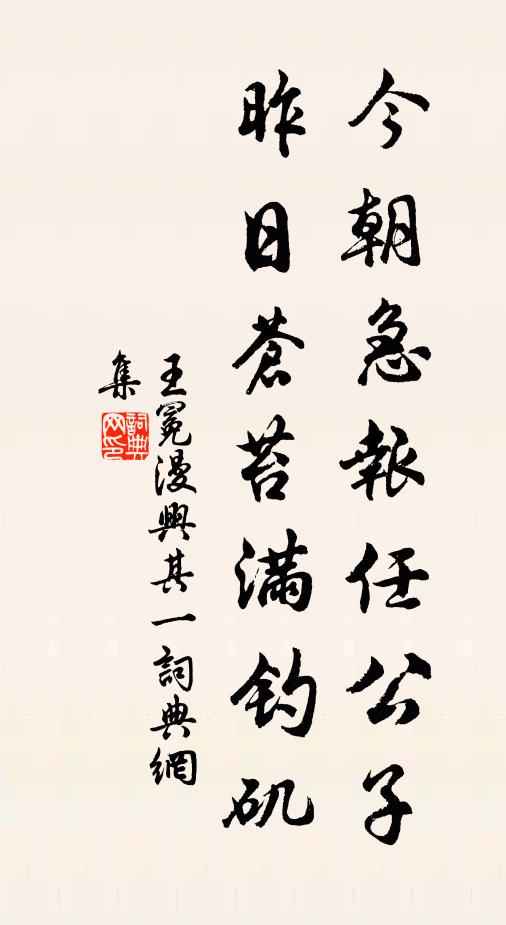 今朝急報任公子
昨日蒼苔滿釣矶
王冕漫興其一詞典網
集
詞典
网印